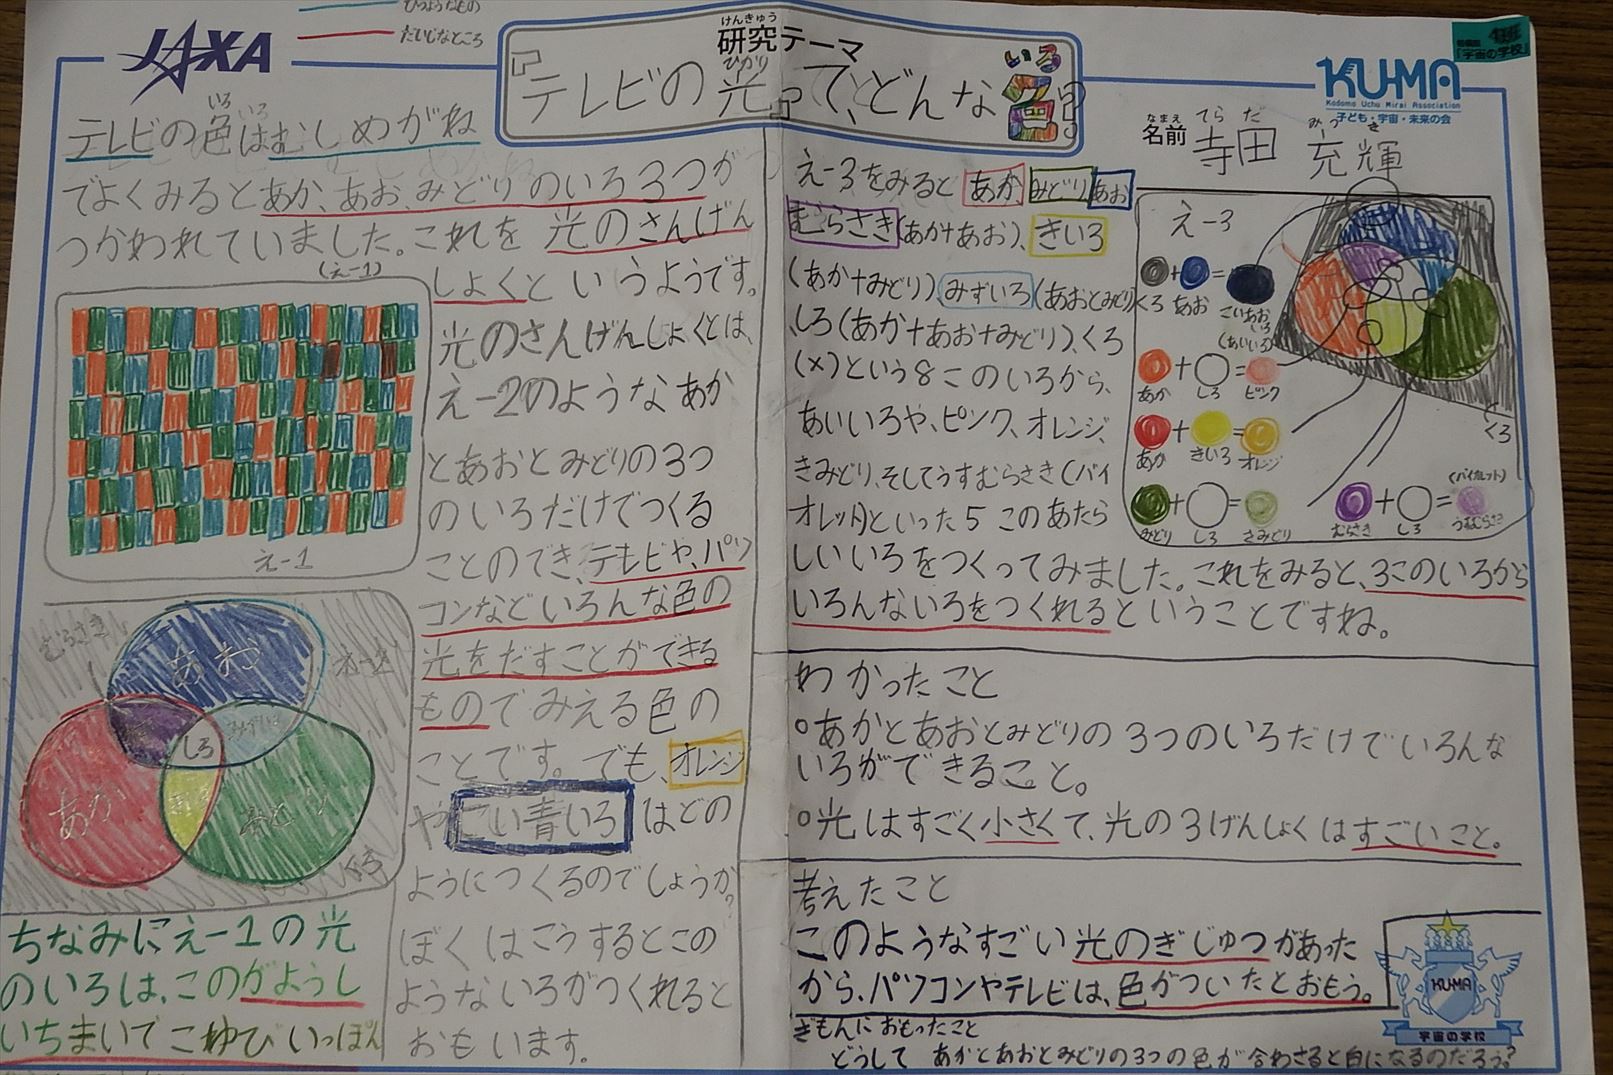 ひつようなもの
だいじなところ
JAXA
けんきゅう
研究テーマ
ひかり いろ
『テレビの光』って、どんな色?
「宇宙の学校」
KU-MA
Kodomo Uchu Mirai Association
子ども・宇宙・未来の会
なまえ てらだ みつき
名前 寺田 充輝
いろ いろ
テレビの色はむしめがね
でよくみるとあか、あお、みどりのいろ3つが
つかわれていました。これを光のさんげん
(え-1)
しょくというようです。
光のさんげんしょくとは、
え-2のようなあか
とあおとみどりの3つ
のいろだけでつくる
ことのでき、テレビや、パソ
コンなどいろんな色の
光をだすことができる
ものでみえる色の
ことです。でも、オレンジ
やこい青いろはどの
ようにつくるのでしょうか?
ぼくはこうするとこの
ようないろがつくれると
おもいます。
え-1
むらさき
あお
え-2
しろ
みずいろ
あか
みどり
くろ
ちなみにえ-1の光
のいろは、このがようし
いちまいでこゆびいっぽん
え-3をみるとあか みどり あお
むらさき(あか+あお)、きいろ
(あか+みどり)、みずいろ(あおとみどり)
、しろ(あか+あお+みどり)、くろ
(×)という8このいろから、
あいいろや、ピンク、オレンジ、
きみどり、そしてうすむらさき(バイ
オレット)といった5このあたら
しいいろをつくってみました。これをみると、3このいろから
いろんないろをつくれるということですね。
え-3
+ =
くろ あお こいあおいろ
(あいいろ)
+ =
あか しろ ピンク
+ =
あか きいろ オレンジ
くろ
+ =
みどり しろ きみどり
(バイオレット)
+ =
むらさき しろ うすむらさき
わかったこと
○あかとあおとみどりの3つのいろだけでいろんな
いろができること。
○光はすごく小さくて、光の3げんしょくはすごいこと。
考えたこと
このようなすごい光のぎじゅつがあった
から、パソコンやテレビは、色がついたとおもう。
ぎもんにおもったこと
どうして あかとあおとみどりの3つの色が合わさると白になるのだろう?
KUMA
宇宙の学校